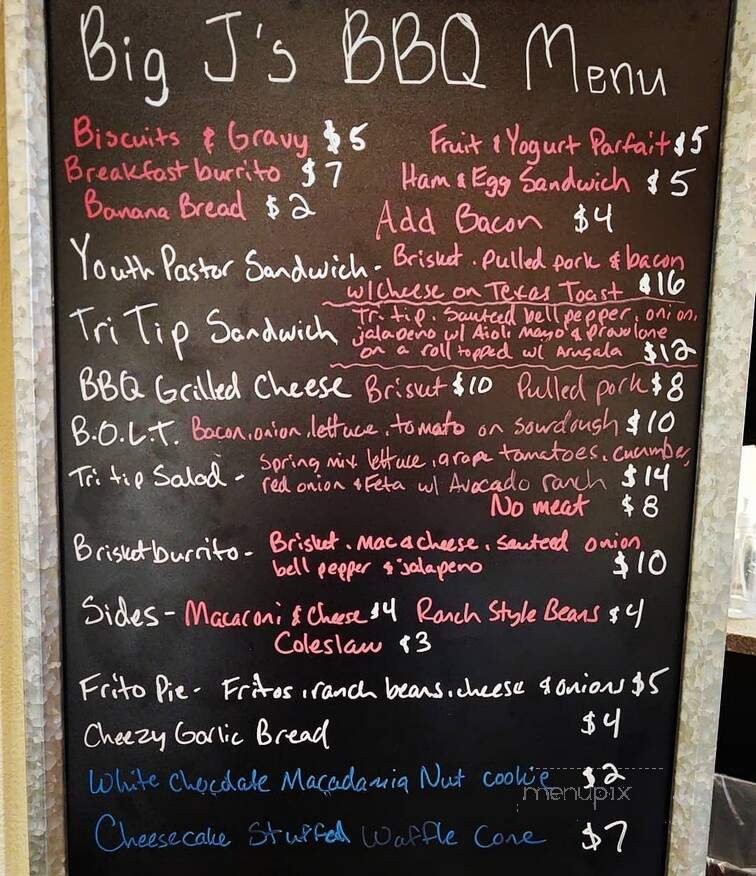 Big J's BBQ Menu
Biscuits & Gravy $5
Fruit & Yogurt Parfait $5
Breakfast burrito $7
Ham & Egg Sandwich $5
Banana Bread $2
Add Bacon $4
Youth Pastor Sandwich - Brisket, Pulled pork & bacon
w/cheese on Texas Toast $16
Tri Tip Sandwich Tri tip, Sauteed bell pepper, onion,
jalapeno w/ Aioli mayo & provolone
on a roll topped w/ Arugala $12
BBQ Grilled Cheese Brisket $10 Pulled pork $8
B.O.L.T. Bacon, onion, lettuce, tomato on sourdough $10
Tri tip Salad - Spring mix lettuce, grape tomatoes, cucumber,
red onion & Feta w/ Avocado ranch $14
No meat $8
Brisket burrito - Brisket, Mac & cheese, Sauteed onion
bell pepper & jalapeno $10
Sides - Macaroni & Cheese $4 Ranch Style Beans $4
Coleslaw $3
Frito Pie - Fritos, ranch beans, cheese & onions $5
Cheezy Garlic Bread $4
White Chocolate Macadamia Nut cookie $2
menupix
Cheesecake Stuffed Waffle Cone $7